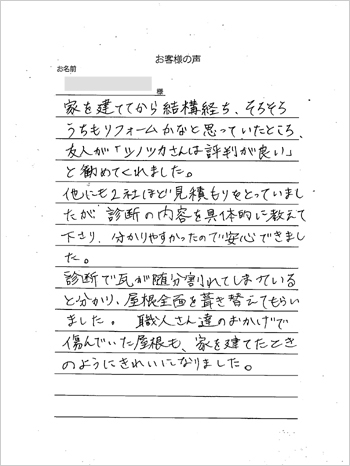 お客様の声
お名前
様
家を建ててから結構経ち、そろそろ
うちもリフォームかなと思っていたところ、
友人が「ツノツカさんは評判が良い」
と勧めてくれました。
他にも2社ほど見積もりをとっていまし
たが診断の内容を具体的に教えて
下さり、分かりやすかったので安心できまし
た。
診断で瓦が随分割れてしまっている
と分かり、屋根全面を葺き替えてもらい
ました。 職人さん達のおかげで
傷んでいた屋根も、家を建てたとき
のようにきれいになりました。